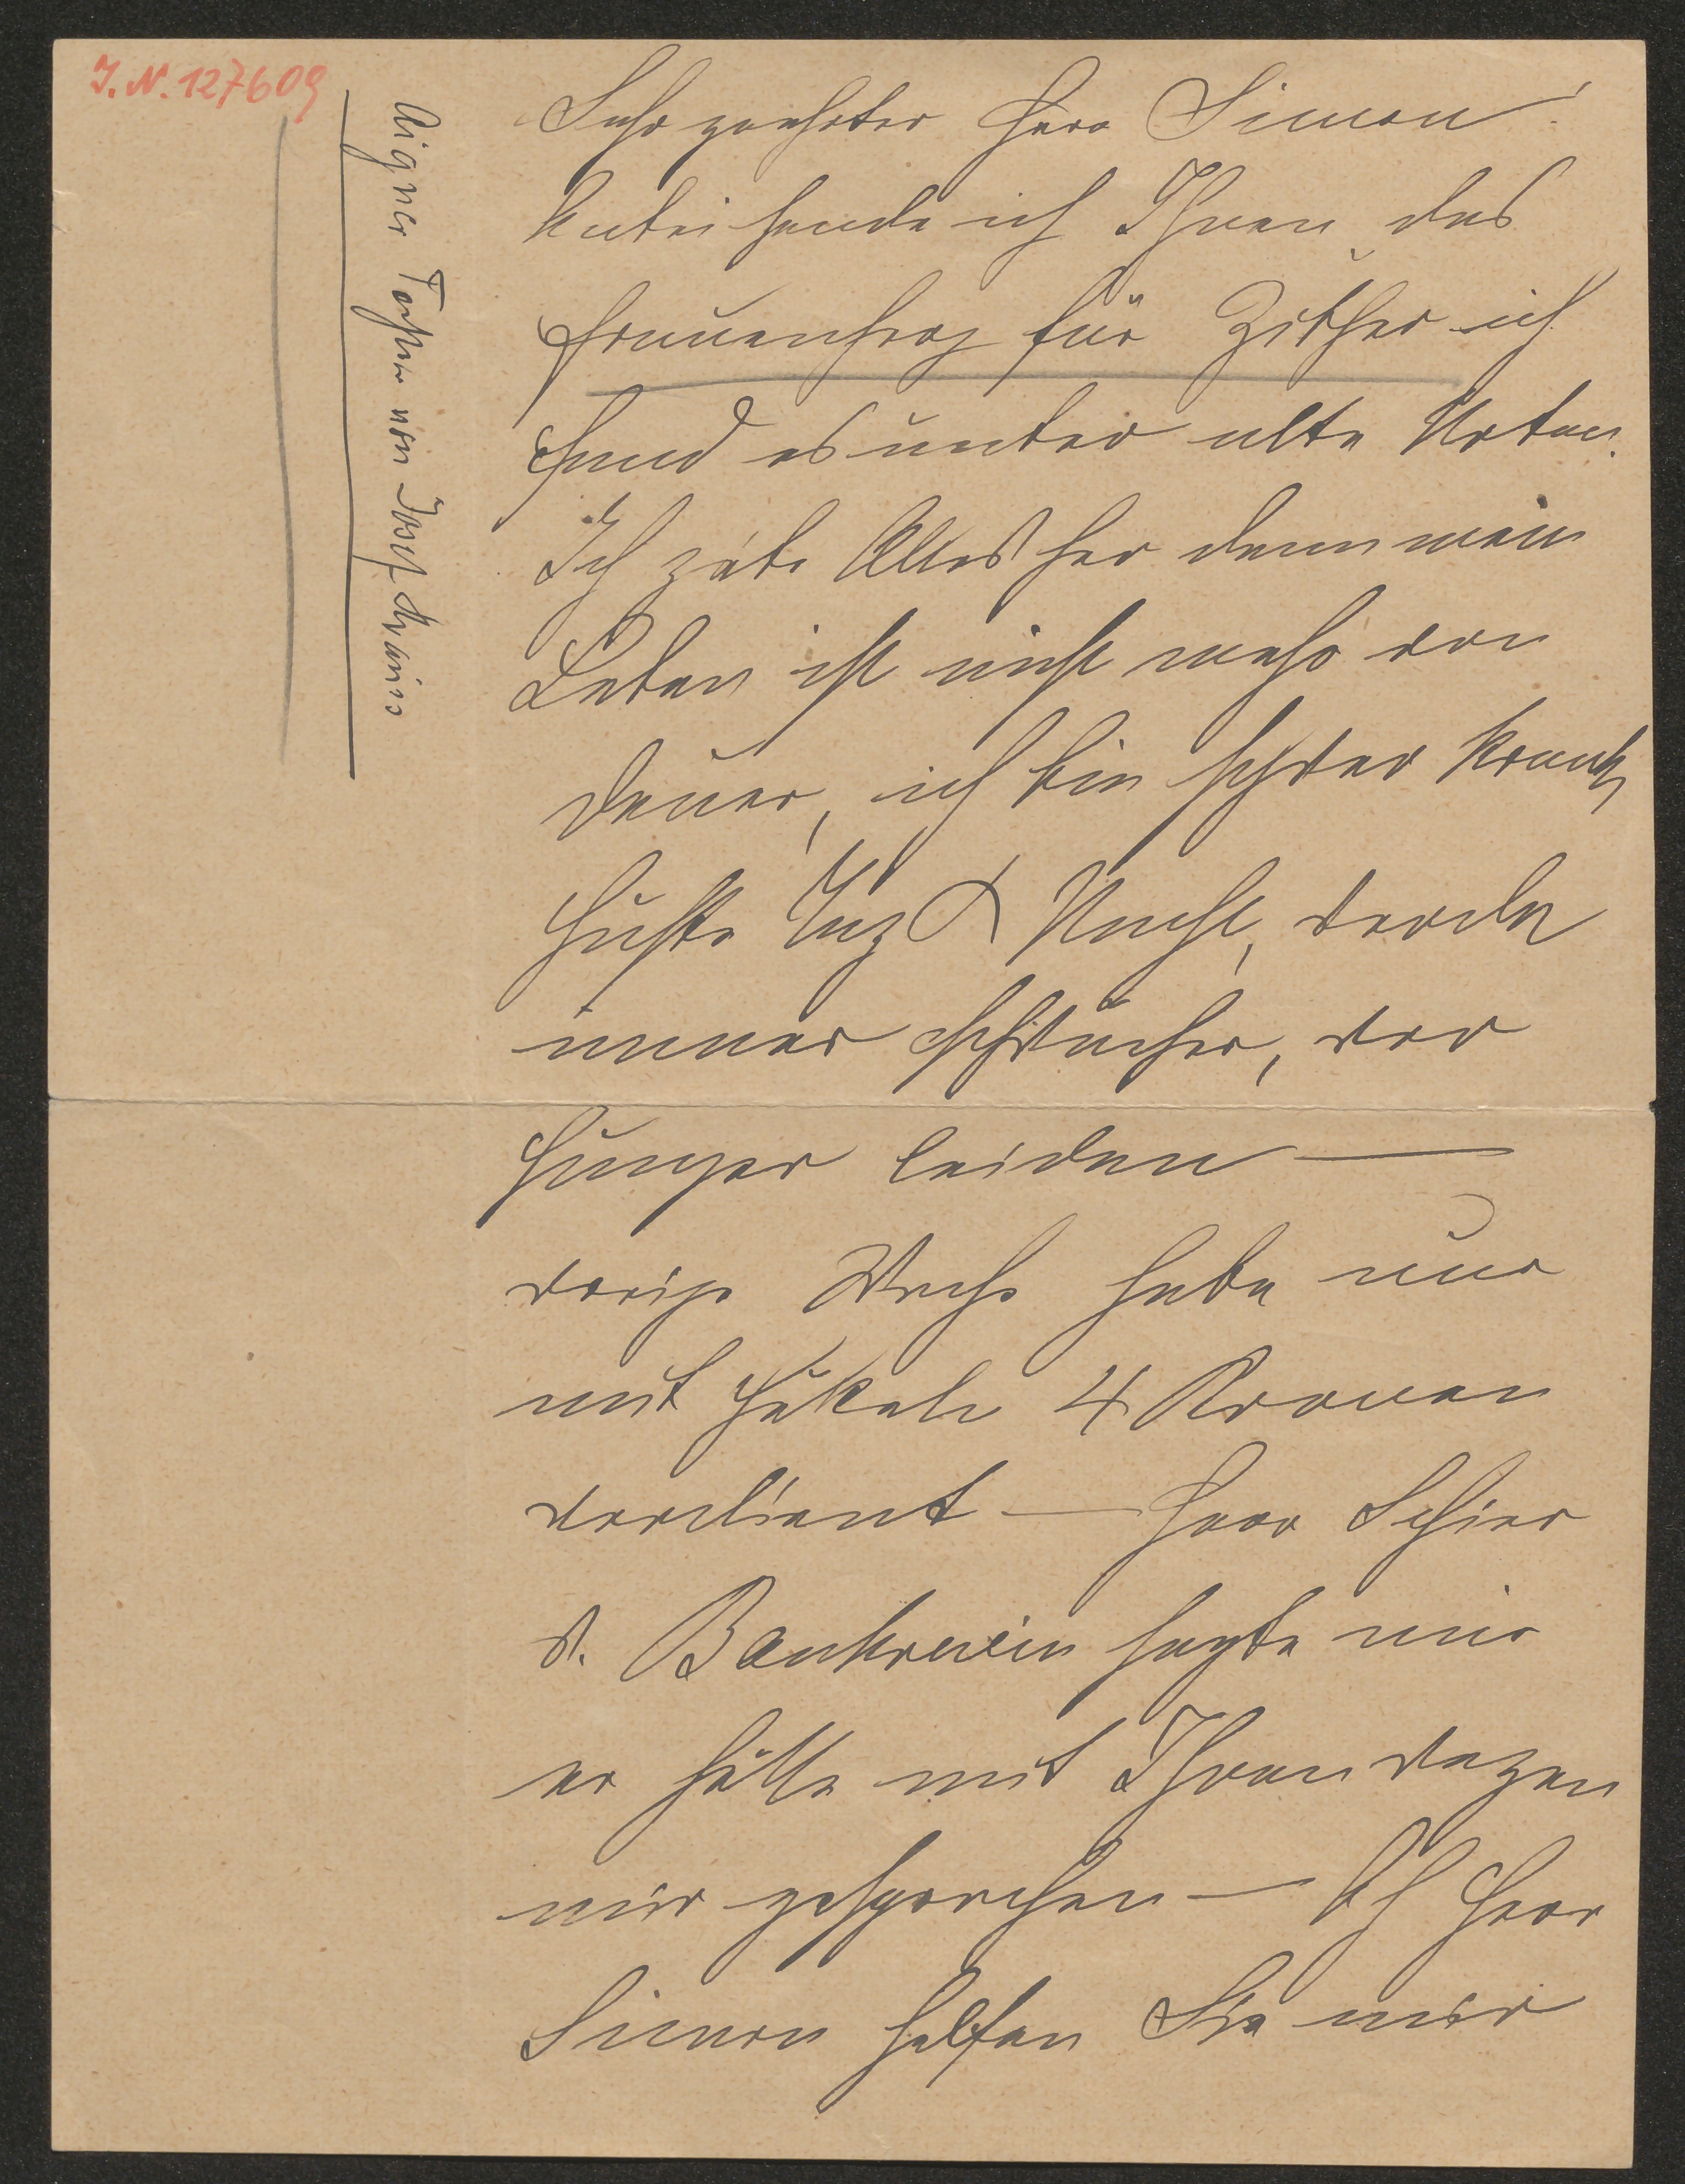 J. N. 127609
Aigner Tochter von Josef Strauss
Sehr geehrter Herr Simon!
Anbei sende ich Ihnen das
Frauenherz für Zither ich
fand es unter alte Noten.
Ich gebe Alles her denn mein
Leben ist nicht mehr von
Dauer, ich bin schwer krank,
huste Tag & Nacht, werde
immer schwächer, vor
Hunger leiden —
vorige Woche habe nur
mit Häkeln 4 Kronen
verdient — Herr Schier
v. Bankverein sagte mir
er hätte mit Ihnen wegen
mir gesprochen — Ach Herr
Simon helfen Sie mir